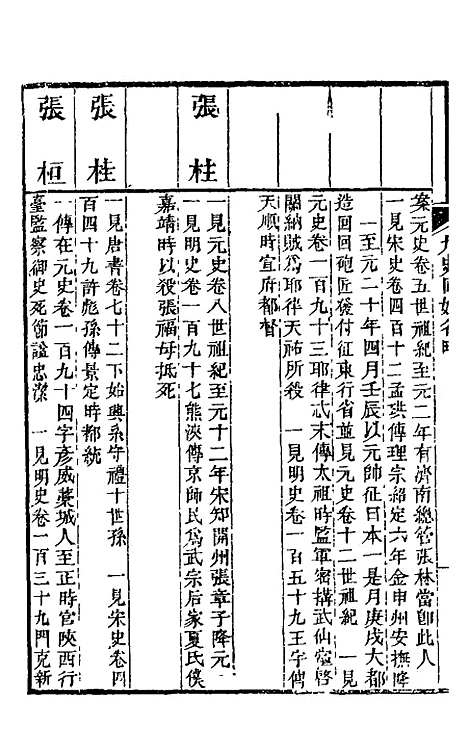 案元史卷五世祖紀至元二年有濟南總管張林當卽此人
一見宋史卷四百十二孟珙傳理宗紹定六年金申州安撫降
一至元二十年四月壬辰以元帥征日本一是月庚戌大都
造回回砲匠付征東行省並見元史卷十二世祖紀　一見
元史卷一百九十三耶律忒末傳太祖時監軍密搆武仙啓
關納賊爲耶律天祐所殺　一見明史卷一百五十九王宇傳
天順時宣府都督
張柱
一見元史卷八世祖紀至元十二年宋知開州張章子降元
一見明史卷一百九十七熊浹傳京師民爲武宗后家夏氏僕
嘉靖時以毆張福母抵死
張桂
一見唐書卷七十二下始興系守禮十世孫　一見宋史卷四
百四十九許彪孫傳景定時都統
張桓
一傳在元史卷一百九十四字彥威藁城人至正時官陝西行
臺監察御史死節諡忠潔　一見明史卷一百三十九門克新